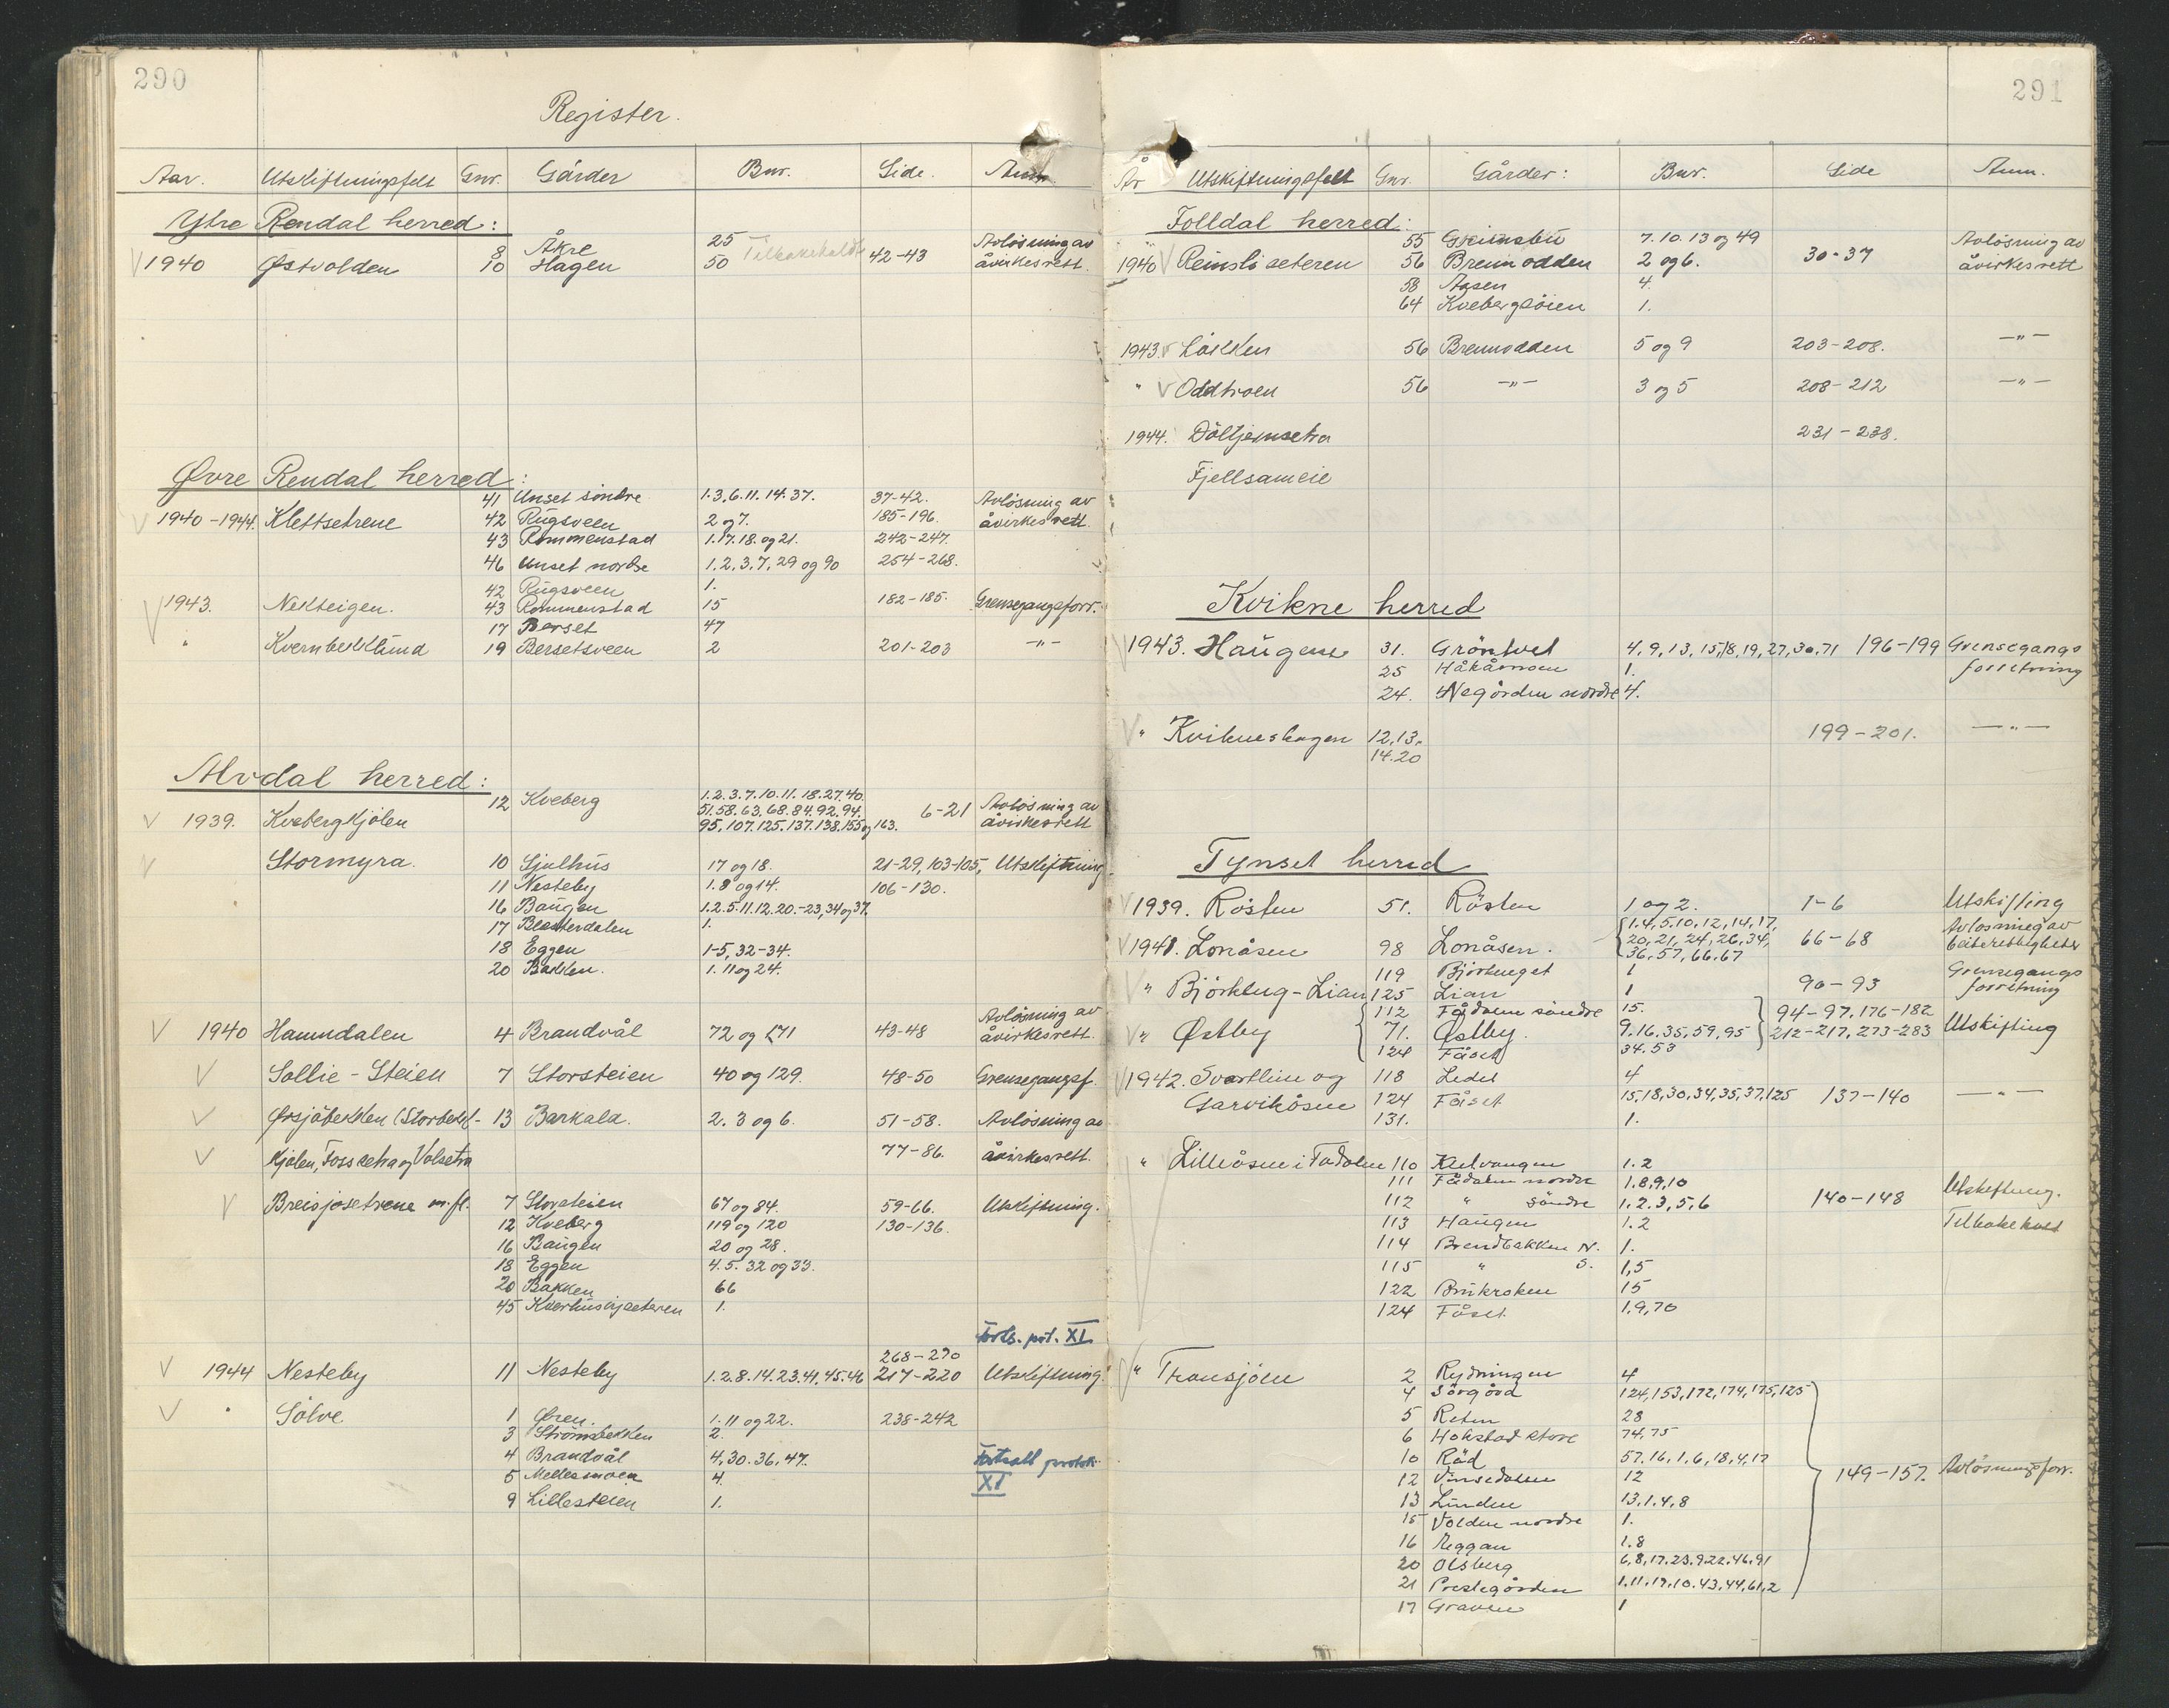 290
Register.
Aar. Utskiftningsfelt Gnr. Gårder Bnr. Side. Anm.
Ytre Rendal herred:
8 Åkre 25 Tilbakekaldt 42-43 Avlösning av
V 1940 Østvolden 10 Hagen 50 åvirkesrett.
Øvre Rendal herred:
41 Unset söndre 1.3.6.11.14.37. 37-42. Avlösning av
V 1940-1944. Klettsetrene 42 Rugsveen 2 og 7. 185-196. åvirkesrett.
43 Rommenstad 1.17.18. og 21. 242-247.
46 Unset nordre 1, 2, 3, 7, 29 og 90 254-268.
42 Rugsveen 1.
V 1943. Nekteigen. 43 Rommenstad 15 182-185. Grensegangsforr.
17 Berset 47
" Kvernbekklund 19 Bersetsveen 2 201-203 -"-
Alvdal herred:
12 Kveberg 1.2.3.7.10.11.18.27.40.
V 1939. Kvebergkjölen 51.58.63.68.84.92.94. 6-21 Avlösning av
95, 107.125.137.138.155 og 163. åvirkesrett
V Stormyra. 10 Sjulhus 17 og 18. 21-29, 103-105, Utskiftning
11 Nesteby 1.8 og 14. 106-130.
16 Baugen 1.2.5.11.12.20.-23, 34 og 37.
17 Blesterdalen 1.
18 Eggen 1-5, 32-34.
20 Bakken. 1. 11 og 24.
Avlösning av
V 1940 Hamndalen 4 Brandvål 72 og 171 43-48 åvirkesrett.
V Sollie-Steien 7 Storsteien 40 og 129. 48-50 Grensegangsf.
V Ørsjöbekken (Storbekk- 13 Barkald. 2. 3 og 6. 51-58. Avlösning av
V kjölen, Fossetra og Volsetra 77-86. åvirkesrett.
V Breisjøsetrene m.fl. 7 Storsteien 67 og 84. 59-66. Utskiftning.
12 Kveberg 119 og 120 130-136.
16 Baugen 20 og 28.
18 Eggen 4. 5. 32 og 33.
20 Bakken 66
45 Kverhusvjseteren 1.
Forts. prot. XI
268-290
V 1944 Nesteby 11 Nesteby 1.2.8.14.23.41.45.46 217-220 Utskiftning.
V " Sölve 1 Øren. 1. 11 og 22. 238-242
3 Strömsbekken 2.
4 Brandvål 4, 30. 36, 47. Fortsatt protok.
5 Mellesmoen 4. XI
9 Lillesteien 1.
291
År Utskiftningsfelt Gnr. Gårder: Bnr. Side Anm.
Folldal herred:
55 Grimsbu 7. 10. 13 og 49 Avlösning av
1940 V Reinsliseteren 56 Brennodden 2 og 6. 30-37 åvirkesrett
58 Aasen 4.
64 Kvebergsöien 1.
1943. V 56 Brennodden 5 og 9 203-208. -"-
" V Oddtroen 56 -"- 3 og 5 208-212 -"-
1944. Döltjernsetra 231-238.
Fjellsameie
Kvikne herred
V 1943. Haugene 31. Gröntvet 4, 9, 13, 15, 18, 19, 27, 30, 71 196-199 Grensegangs
25 Håkåmoen 1. forretning
24. Negården nordre 4.
V " Kvikneskogen 12. 13. 199-201. -"-
14. 20
Tynset herred
V 1939. Rösten 51. Rösten 1 og 2. 1-6 Utskifting
V 1941. Lonåsen 98 Lonåsen. 1. 4, 5, 10, 12, 14, 17, 66-68 Avlösning av
20, 21, 24, 26, 34, beiterettigheter
36, 57, 66, 67
V " Björkbug-Lian 119 1 90-93 Grensegangs
125 Lian 1 forretning
V " Østby 112 Fådalen söndre 15. 94-97, 176-182
71. Østby. 9. 16. 35, 59, 95 212-217, 273-283 Utskifting
124 Fåset 34. 53
V 1942. Svartlien og 118 Ledet 4
Garvikåsen 124 Fåset 15, 18, 30, 34, 35, 37, 125 137-140 -"-
131. 1.
V " Lilleåsen i Fådalen 110 Kletvangen 1. 2
111 Fådalen nordre 1, 8, 9, 10
112 " söndre 1. 2. 3, 5, 6 140-148 Utskiftning.
113 Haugen 1. 2 Tilbakekalt
114 Brendbakken N. 1.
115 " S. 1, 5
122 Brukroken 15
124 Fåset 1, 9, 70
V " Tronsjöen 2 Rydningen 4
4 Sörgård 124, 153, 172, 174, 175, 125
5 Reten 28
6 Hokstad store 74, 75
10 Röd 57. 16, 1. 6, 18, 4, 17
12 12 149-157. Avlösningsforr.
13 Lunden 13, 1. 4, 8
15 Volden nordre 1.
16 Neggan 1. 8
20 Olsberg 6, 8, 17. 23. 9 22. 46, 91
21 Prestegården 1, 11, 19, 10. 43, 44, 61, 2
17 Graven 1